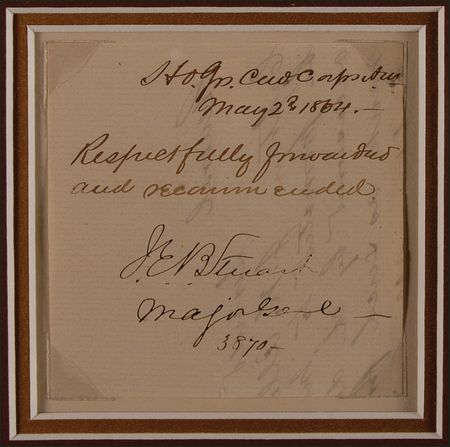 Hd. Qrs. Cav Corps Army
May 2d 1864.—
Respectfully forwarded
and recommended
J.E.B Stuart
Major Genl —
3870—